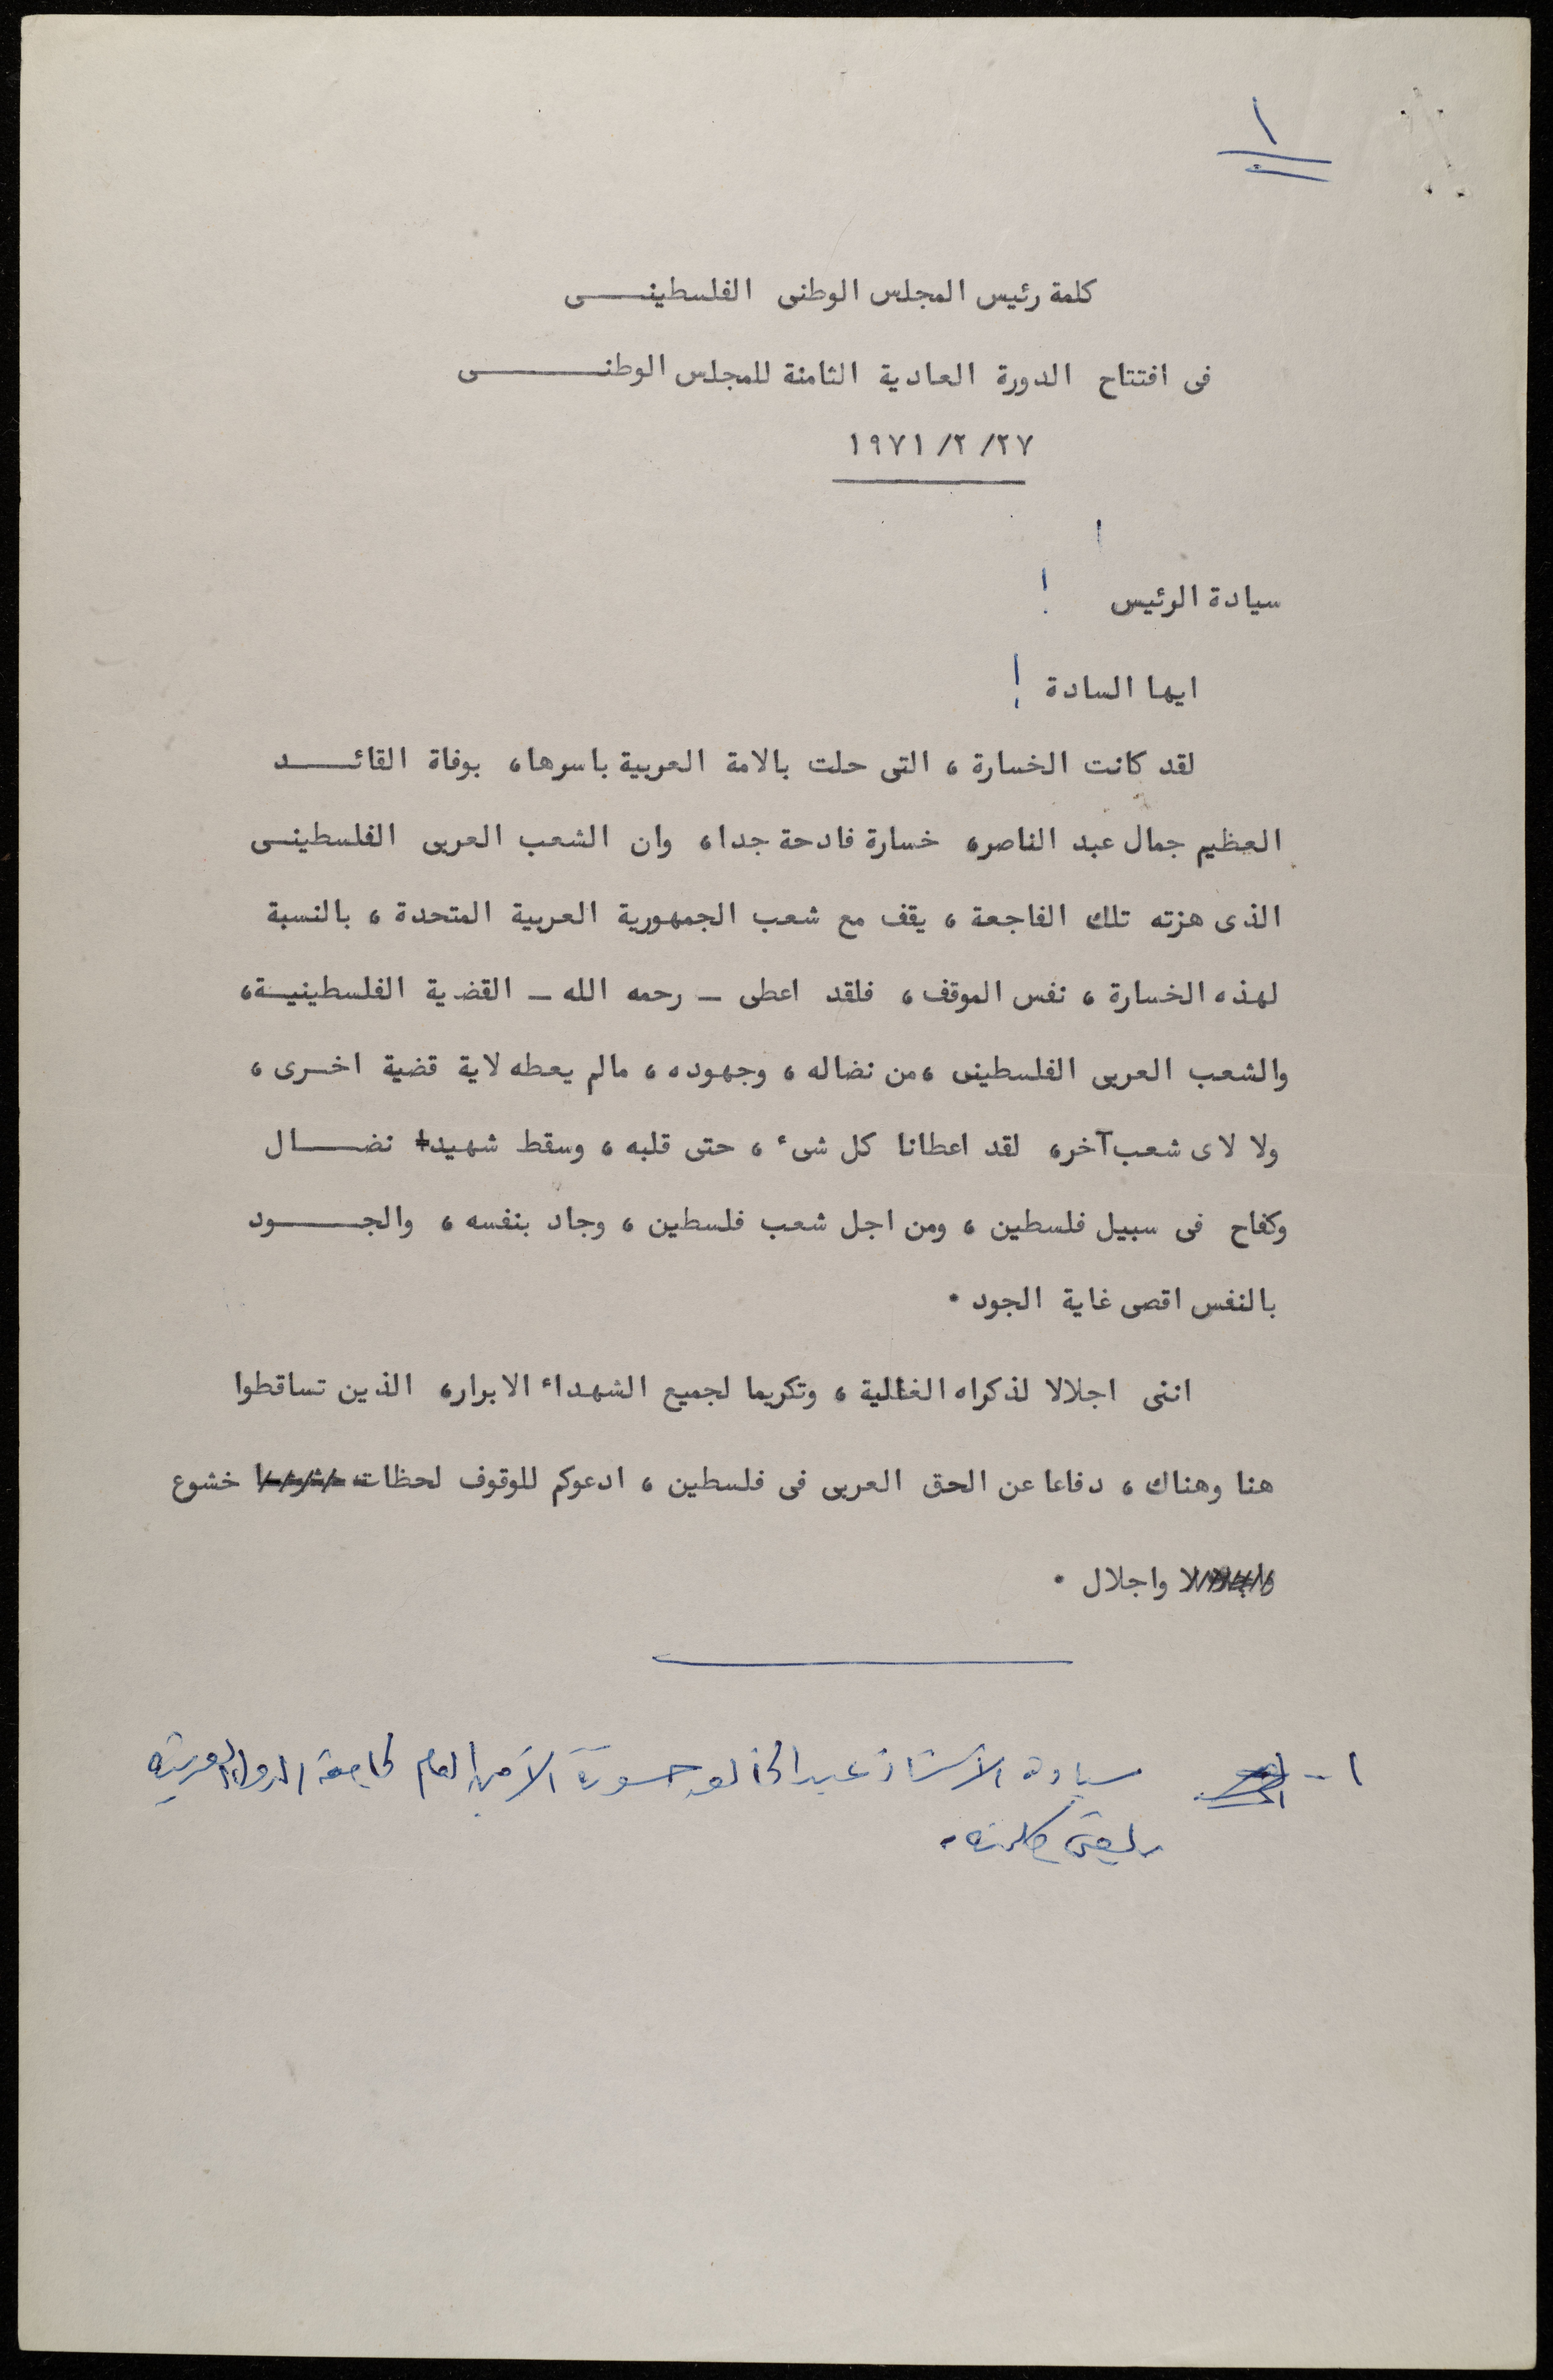 ١
كلمة رئيس المجلس الوطنى الفلسطينى
فى افتتاح الدورة العادية الثامنة للمجلس الوطنى
٢٧/ ٢/ ١٩٧١
سيادة الرئيس !
ايها السادة !
لقد كانت الخسارة ، التى حلت بالامة العربية باسرها، بوفاة القائد
العظيم جمال عبد الناصر، خسارة فادحة جدا، وان الشعب العربى الفلسطينى
الذى هزته تلك الفاجعة ، يقف مع شعب الجمهورية العربية المتحدة ، بالنسبة
لهذه الخسارة ، نفس الموقف ، فلقد اعطى - رحمه الله - القضية الفلسطينية،
والشعب العربى الفلسطينى ،من نضاله ، وجهوده ، مالم يعطه لاية قضية اخرى ،
ولا لاى شعب آخر، لقد اعطانا كل شىء ، حتى قلبه ، وسقط شهيد نضال
وكفاح فى سبيل فلسطين ، ومن اجل شعب فلسطين ، وجاد بنفسه ، والجود
بالنفس اقصى غاية الجود .
اننى اجلالا لذكراه الغالية ، وتكريما لجميع الشهداء الابرار، الذين تساقطوا
هنا وهناك ، دفاعا عن الحق العربى فى فلسطين ، ادعوكم للوقوف لحظات خشوع
واجلال .
١ - سيادة الأستاذ عبد الخالق حسونة الأمين العام لجامعة الدول العربية
يلقى كلمته .